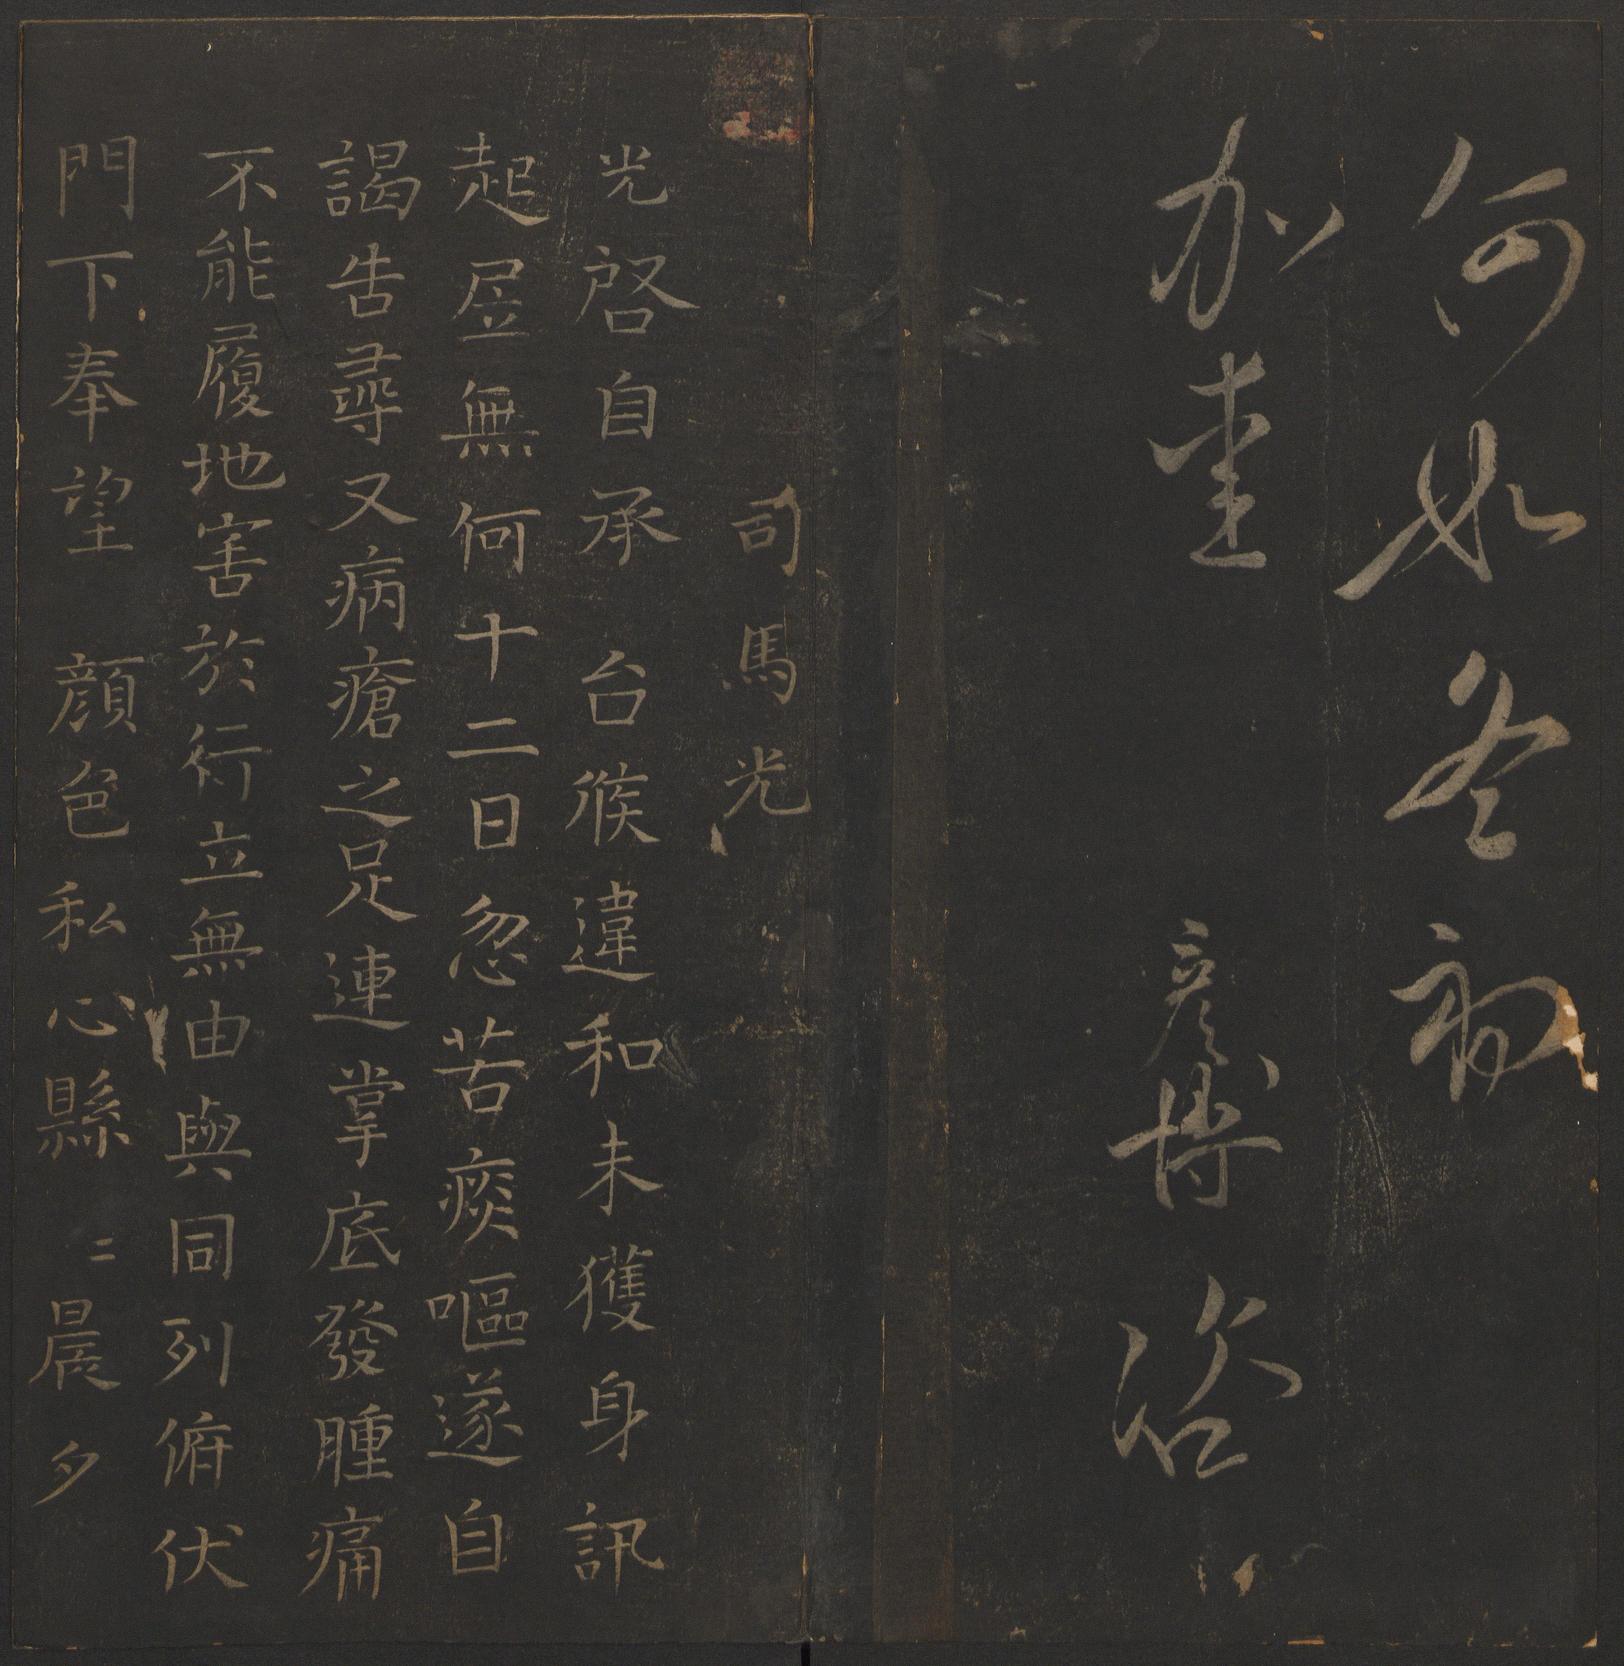 何如冬初
加重 彦博 咨
司馬光
光啓自承 台候違和未獲身訊
起居無何十二日忽苦痰嘔遂自
謁告尋又病瘡之足連掌底發腫痛
不能履地害於行立無由與同列俯伏
門下奉望 顔色私心縣〻晨夕